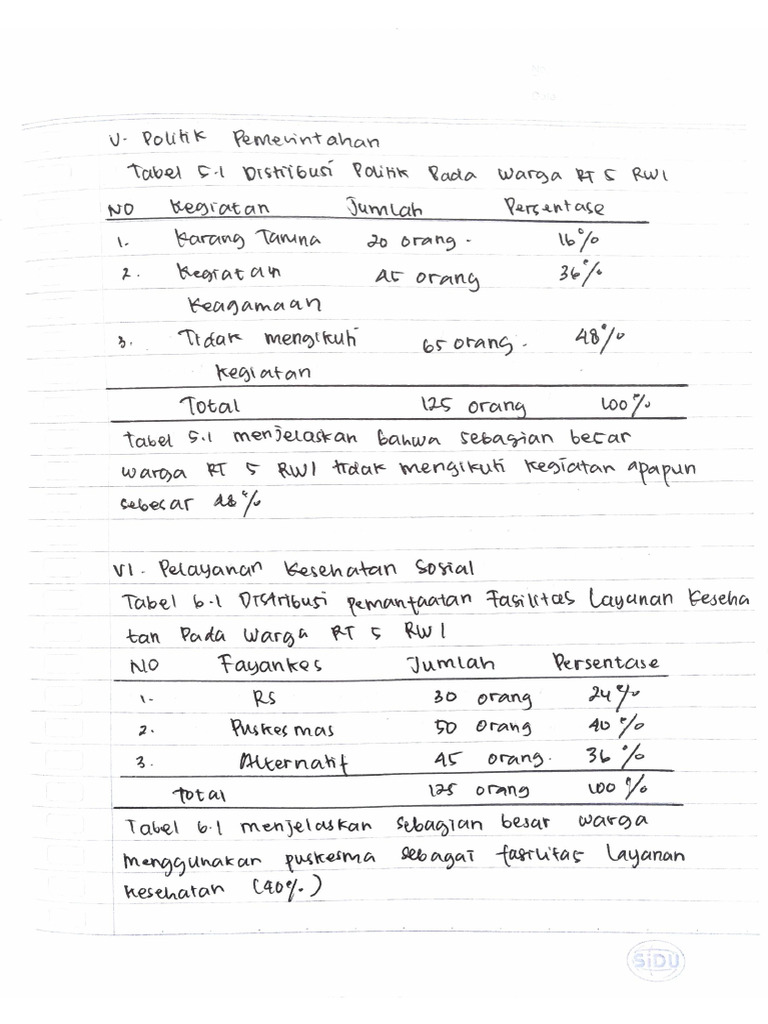 V. Politik Pemerintahan
Tabel 5.1 Distribusi Politik Pada Warga RT 5 RW1
NO Kegiatan Jumlah Persentase
1. Karang Taruna 20 orang. 16%
2. Kegiatan 45 orang 36%
Keagamaan
3. Tidak mengikuti 65 orang. 48%
kegiatan
Total 125 orang 100%
Tabel 5.1 menjelaskan bahwa sebagian besar
warga RT 5 RW1 tidak mengikuti kegiatan apapun
sebesar 48%
VI. Pelayanan Kesehatan Sosial
Tabel 6.1 Distribusi pemanfaatan Fasilitas Layanan Keseha
tan Pada Warga RT 5 RW1
NO Fayankes Jumlah Persentase
1. RS 30 orang 24%
2. Puskesmas 50 orang 40%
3. Alternatif 45 orang. 36%
Total 125 orang 100%
Tabel 6.1 menjelaskan sebagian besar warga
menggunakan puskesma sebagai fasilitas layanan
kesehatan (40%)
SiDU